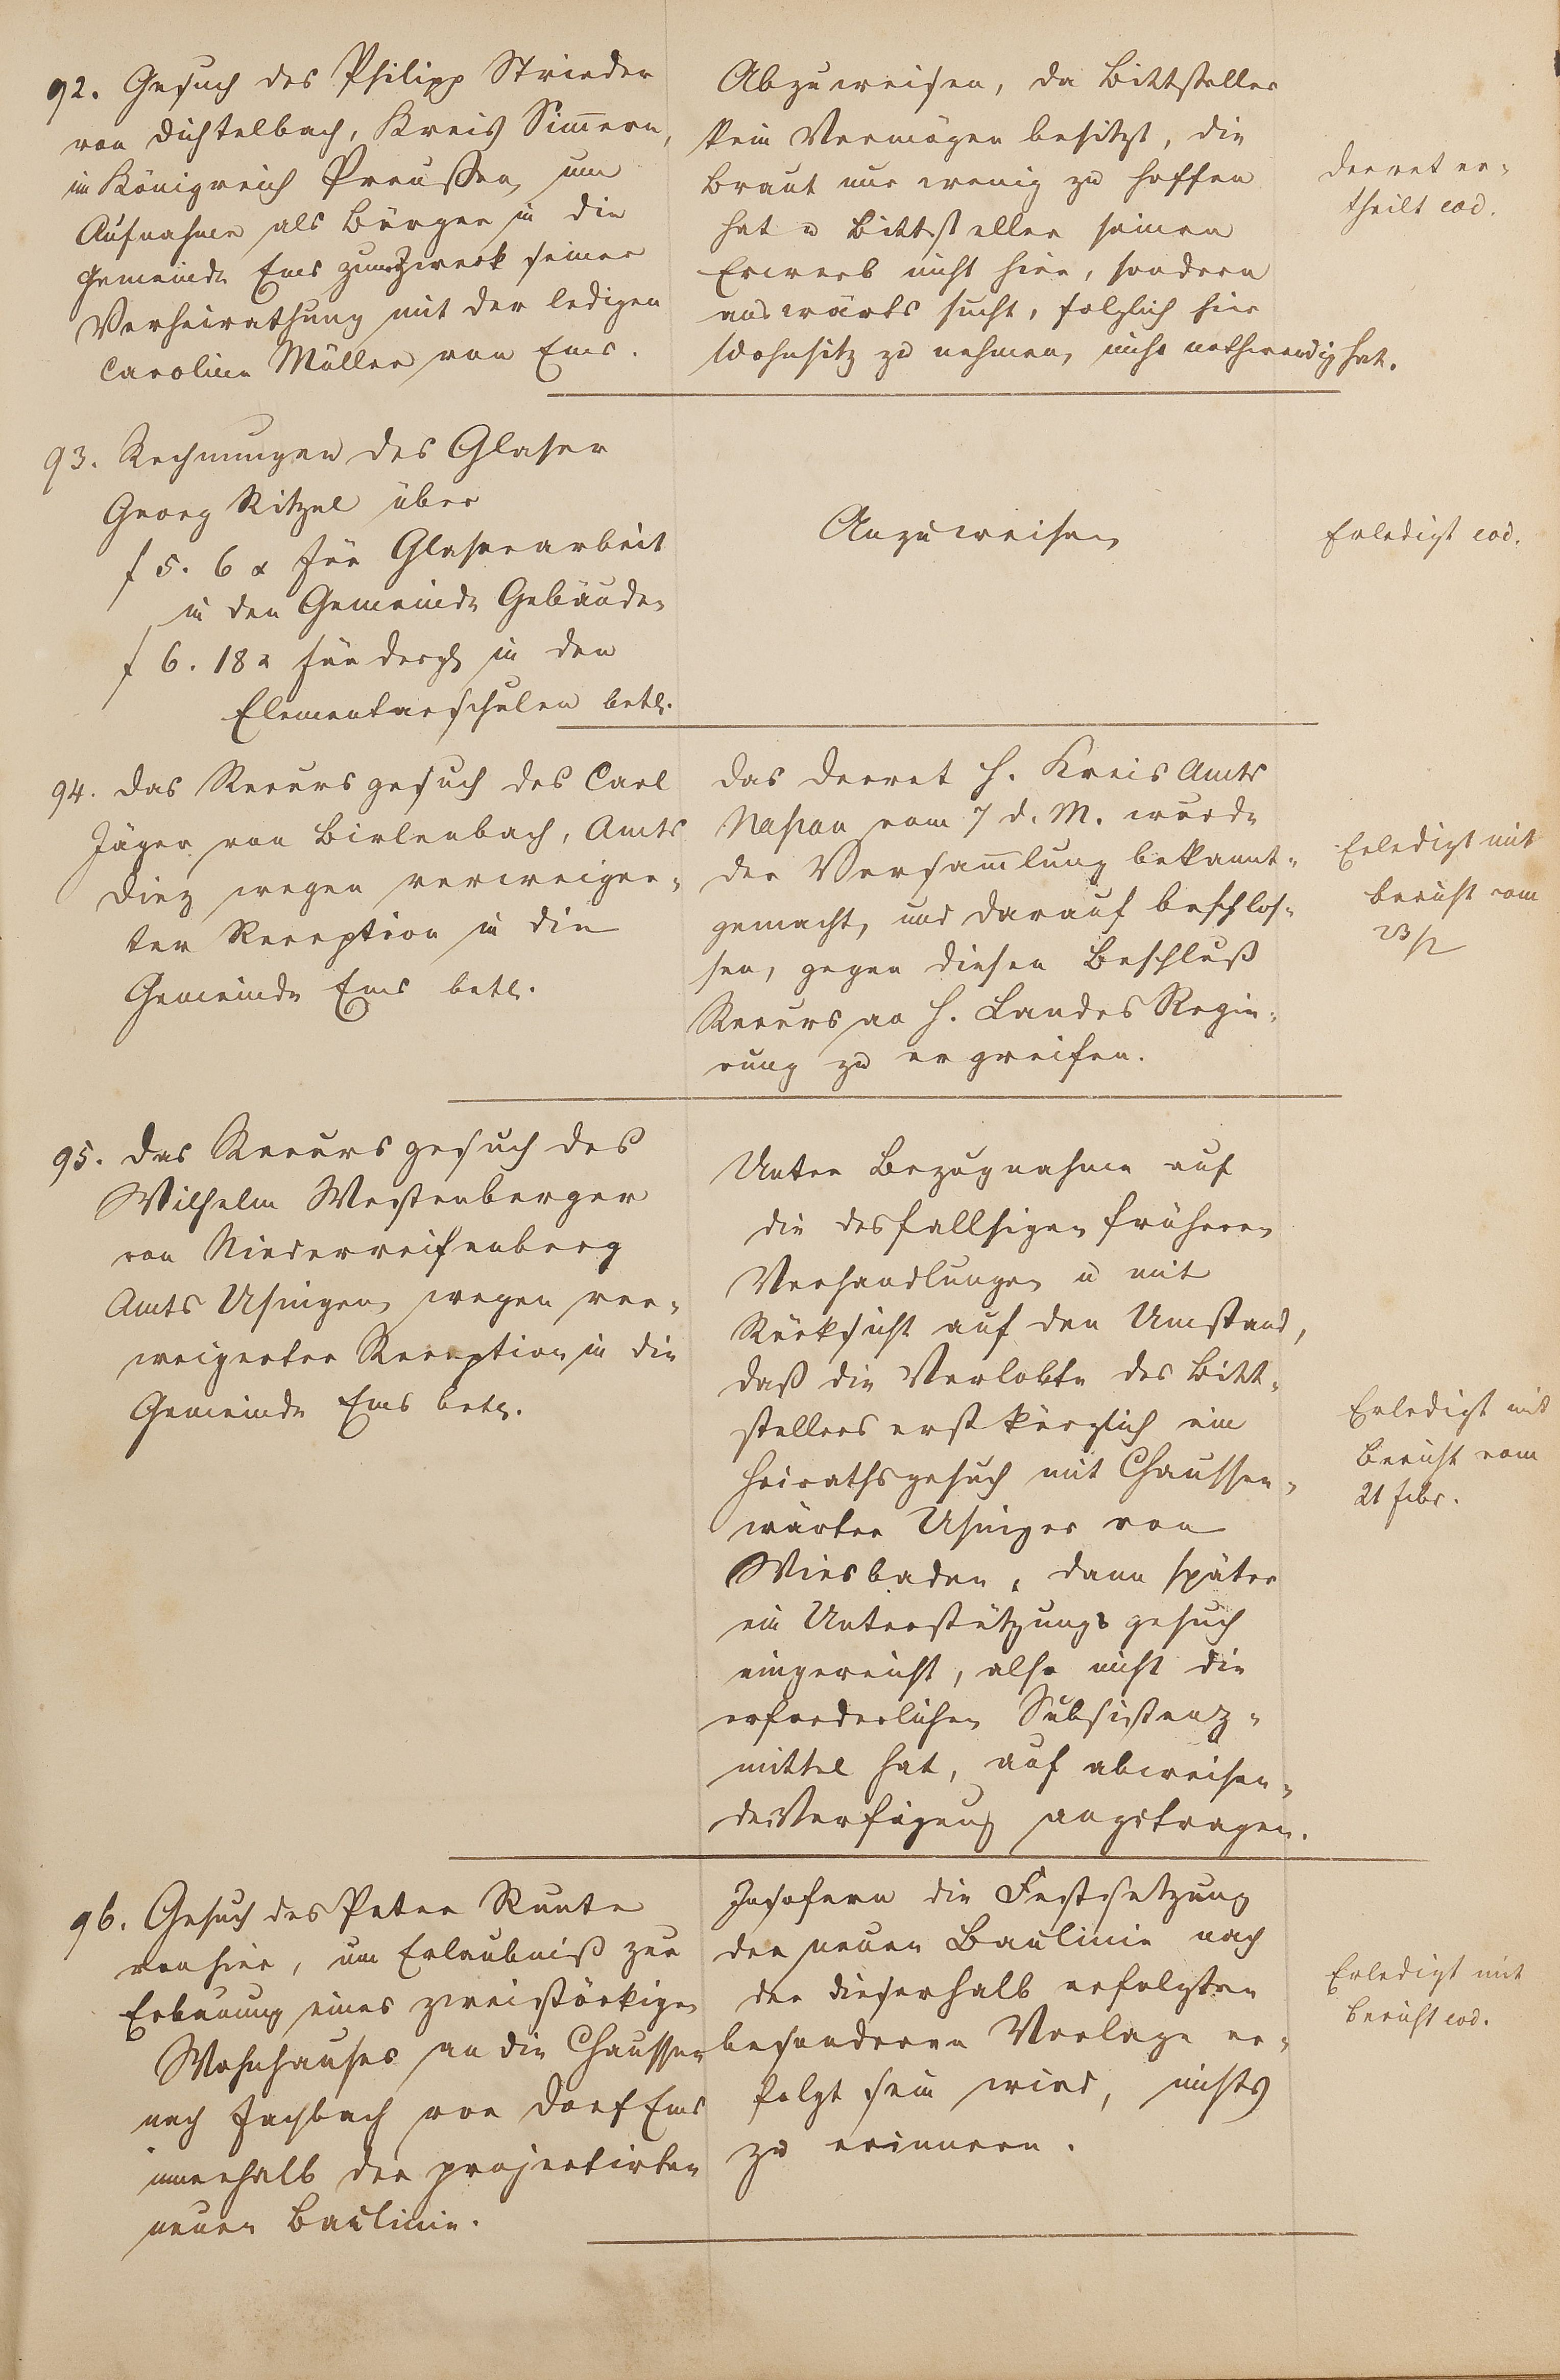 92. Gesuch des Philipp Strieder
von Dichtelbach, Kreis Sim̅ern,
in Königreich Preußen, um
Aufnahme als Bürger in die
Gemeinde Ems zum Zweck seiner
Verheirathung mit der ledigen
Caroline Müller von Ems.
Abzuweisen, da Bittsteller
kein Vermögen besitzt, die
Braut nur wenig zu hoffen
hat u Bittsteller seinen
Erwerb nicht hier, sondern
auswärts sucht, folglich hier
Wohnsitz zu nehmen, nicht nothwendig hat.
Decret er-
theilt eod.
93. Rechnungen des Glaser
Georg Ritzel über
f 5. 6 x für Glaserarbeit
in den Gemeinde Gebäuden
f 6. 18 x für dergl in den
Elementarschulen betr.
Anzuweisen
Erledigt eod.
94. Das Recursgesuch des Carl
Jäger von Birlenbach, Amts
Diez wegen verweiger-
ter Reception in die
Gemeinde Ems betr.
Das Decret H. Kreis Amts
Nassau vom 7 d. M. wurde
der Versam̅lung bekannt-
gemacht, und darauf beschlos-
sen, gegen diesen Beschluß
Recurs an H. Landes Regie-
rung zu ergreifen.
Erledigt mit
Bericht vom
23/2
95. Das Recursgesuch des
Wilhelm Westenberger
von Niederreifenberg
Amts Usingen, wegen ver-
weigerter Reception in die
Gemeinde Ems betr.
Unter Bezugnahme auf
die desfallsigen früheren
Verhandlungen u mit
Rücksicht auf den Umstand,
daß die Verlobte des Bitt-
stellers erst kürzlich ein
Heirathsgesuch mit Chaussee-
wärter Usinger von
Wiesbaden, dann später
ein Unterstützungsgesuch
eingereicht, also nicht die
erforderlichen Subsistenz-
mittel hat, auf abweisen-
de Verfügung angetragen.
Erledigt mit
Bericht vom
21 febr.
96. Gesuch des Peter Runte
von hier, um Erlaubniß zur
Erbauung eines zweistöckigen
Wohnhauses an die Chaussee
nach Fachbach von Dorf Ems
innerhalb der projectirten
neuen Baulinie.
Insofern die Festsetzung
der neuen Baulinie nach
der dieserhalb erfolgten
besonderen Vorlage er-
folgt sein wird, nichts
zu erinnern.
Erledigt mit
Bericht eod.